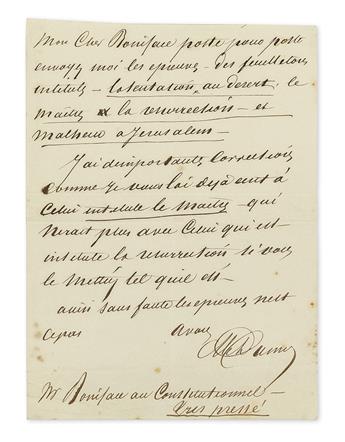 Mon Cher Boniface poste pour poste
envoyez moi les epreuves – des feuilletons
intitules – la tentation au desert, le
maitre & la resurrection – et
Malheur a Jerusalem –
J'ai d'importantes corrections
comme je vous l'ai deja ecrit à
Celui intitule le Maitre – qui
n'irait plus avec Celui qui est
intitule la resurrection si vous
le Mettiez tel quil est –
ainsi sans faute les epreuves n'est
ce pas
a vous
ADumas
Mr Boniface au Constitutionnel –
Tres pressé